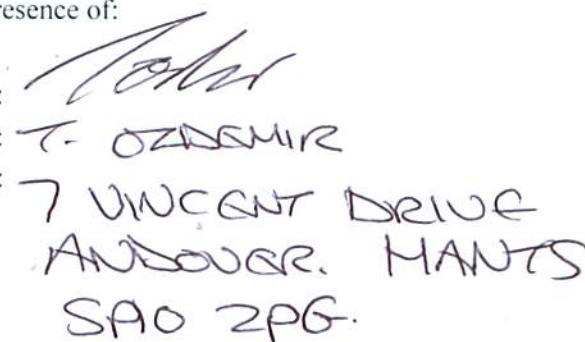 resence of:
:
: T. OZDEMIR
: 7 VINCENT DRIVE
ANDOVER. HANTS
SP10 2PG.